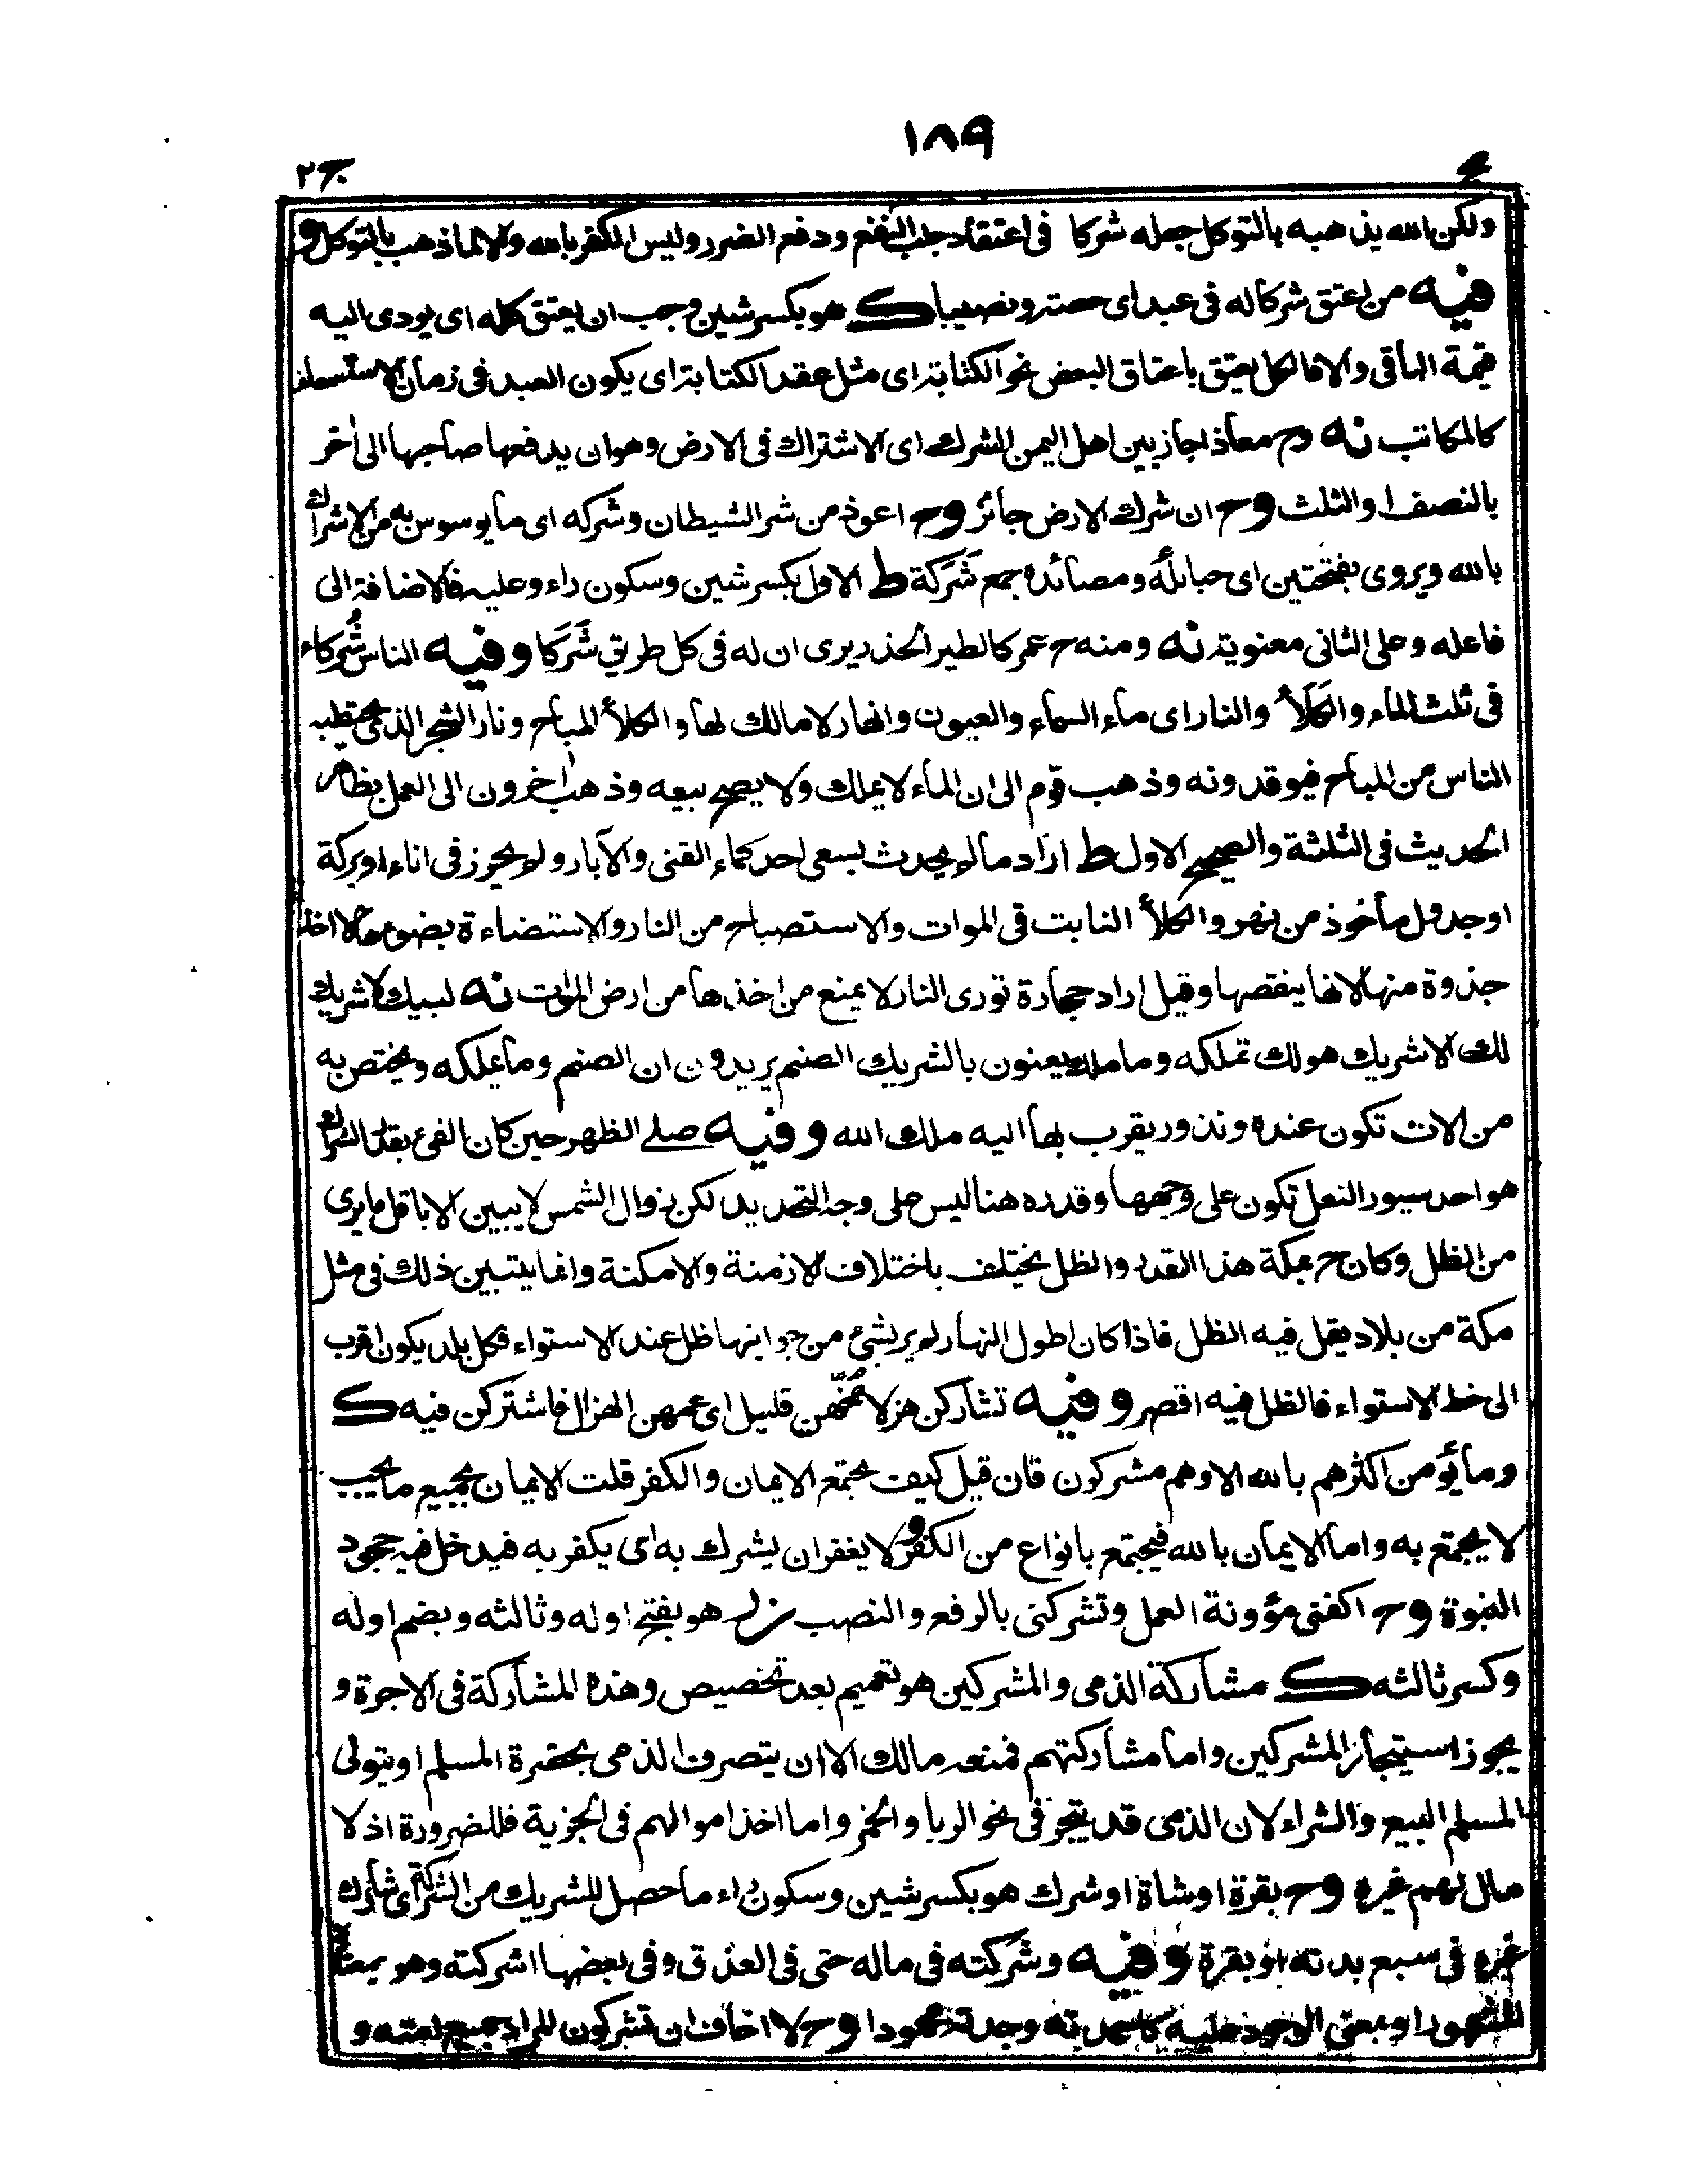 ١٨٩
ج٢
ولكن الله يذهبه بالتوكل جعله شركا فى اعتقاد جلب النفع ودفع الضرر وليس الكفر بالله والا لما ذهب بالتوكل و
فيه من اعتق شركا له فى عبد اى حصته ونصيبا ك هو بكسر شين وجب ان يعتق كله اى يودى اليه
قيمة الباقى والا فالكل يعتق باعتاق البعض نحو الكتابة اى مثل عقد الكتابة اى يكون العبد فى زمان الاستسعاء
كالمكاتب نه وح معاذ اجاز بين اهل اليمن الشرك اى الاشتراك فى الارض وهو ان يدفعها صاحبها الى اٰخر
بالنصف او الثلث وح ان شرك الارض جائز وح اعوذ من شر الشيطان وشركه اى ما يوسوس به من الاشراك
بالله ويروى بفتحتين اى حبائله ومصائده جمع شَرَكة ط الاول بكسر شين وسكون راء وعليه فالاضافة الى
فاعله وعلى الثانى معنوية نه ومنه ح عمر كالطير الحذر يرى ان له فى كل طريق شَرَكا وفيه الناس شُركاء
فى ثلث الماء والكَلَأ والنار اى ماء السماء والعيون وانهار لا مالك لها والكلأ المباح ونار الشجر الذى يحتطبه
الناس من المباح فيوقدونه وذهب قوم الى ان الماء لا يملك ولا يصح بيعه وذهب اٰخرون الى العمل بظاهر
الحديث فى الثلثة والصحيح الاول ط اراد ما لم يحدث بسعى احد كماء القنى والآبار ولم يحرز فى اناء او بركة
او جدول ماخوذ من نهر والكلأ النابت فى الموات والاستصباح من النار والاستضاءة بضوءها لا اخذ
جذوة منها لانها ينقصها وقيل اراد حجارة تورى النار لا يمنع من اخذها من ارض الموات نه لبيك لا شريك
لك الا شريك هو لك تملكه وما ملك يعنون بالشريك الصنم يريدون ان الصنم وما يملكه ويختص به
من الات تكون عنده ونذور يقرب بها اليه ملك الله وفيه صلى الظهر حين كان الفئ بقدر الشراك
هو احد سيور النعل تكون على وجهها وقدره هنا ليس على وجه التحديد لكن زوال الشمس لا يبين الا باقل ما يرى
من الظل وكان ح بمكة هذا القدر والظل يختلف باختلاف الازمنة والامكنة وانما يتبين ذلك فى مثل
مكة من بلاد يقل فيه الظل فاذا كان اطول النهار لم ير بشئ من جوانبها ظل عند الاستواء فكل بلد يكون اقرب
الى خط الاستواء فالظل فيه اقصر وفيه تشاركن هزلا مُخّهن قليل اى عمهن الهزال فاشتركن فيه ك
وما يؤمن اكثرهم بالله الا وهم مشركون فان قيل كيف يجتمع الايمان والكفر قلت الايمان بجميع ما يجب
لا يجتمع به واما الايمان بالله فيجتمع بانواع من الكفر و لا يغفر ان يشرك به اى يكفر به فيدخل فيه جحود
النبوة وح اكفنى مؤونة العمل وتشركنى بالرفع والنصب ز هو بفتح اوله وثالثه وبضم اوله
وكسر ثالثه ك مشاركة الذمى والمشركين هو تعميم بعد تخصيص وهذه المشاركة فى الاجرة و
يجوز استيجار المشركين واما مشاركتهم فمنعه مالك الا ان يتصرف الذمى بحضرة المسلم او يتولى
المسلم البيع والشراء لان الذمى قد يتجر فى نحو الربا والخمر واما اخذ اموالهم فى الجزية فللضرورة اذ لا
مال لهم غيره وح بقرة او شاة او شرك هو بكسر شين وسكون راء ما حصل للشريك من الشركة اى شارك
غيره فى سبع بدنة او بقرة وفيه وشركته فى ماله حتى فى العذق وفى بعضها اشركته وهو بمعنى
المشهور او بمعنى الوجود عليه كاحمدته وجدته محمودا وح لا اخاف ان تشركون المراد جميع امته و